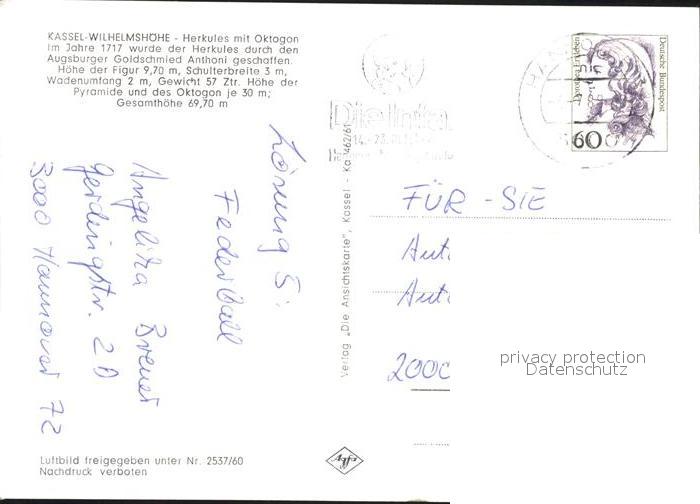 KASSEL-WILHELMSHÖHE - Herkules mit Oktogon
Im Jahre 1717 wurde der Herkules durch den
Augsburger Goldschmied Anthoni geschaffen.
Höhe der Figur 9,70 m, Schulterbreite 3 m,
Wadenumfang 2 m, Gewicht 57 Ztr. Höhe der
Pyramide und des Oktogon je 30 m;
Gesamthöhe 69,70 m
Lösung 5:
Federball
Angelika Breuer
Geidingstr. 2D
3000 Hannover 72
Luftbild freigegeben unter Nr. 2537/60
Nachdruck verboten
Verlag „Die Ansichtskarte", Kassel - Ka 462/61
Deutsche Bundespost
60
FÜR - SIE
2000
privacy protection
Datenschutz